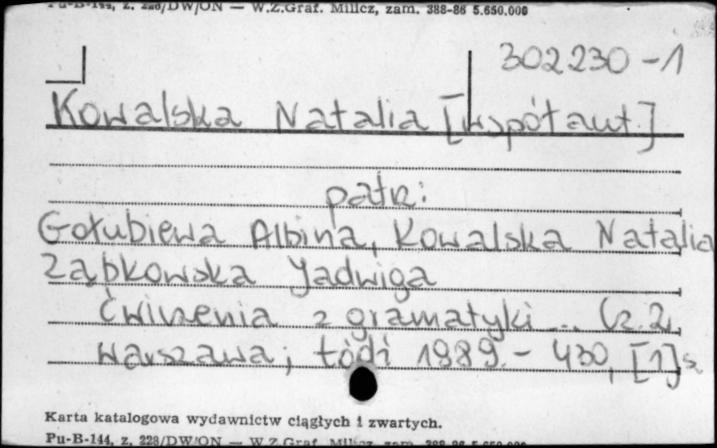 Pu-B-144, z. 228/DW/ON — W.Z.Graf. Milicz, zam. 388-86 5.650.000
302230-1
Kowalska Natalia [współaut.]
patrz:
Gołubiewa Albina, Kowalska Natalia
Ząbkowska Jadwiga
Ćwiczenia z gramatyki... Cz. 2.
Warszawa; Łódź 1989. - 430, [1] s.
Karta katalogowa wydawnictw ciągłych i zwartych.
Pu-B-144, z. 228/DW/ON — W.Z.Graf. Milicz, zam. 388-86 5.650.000